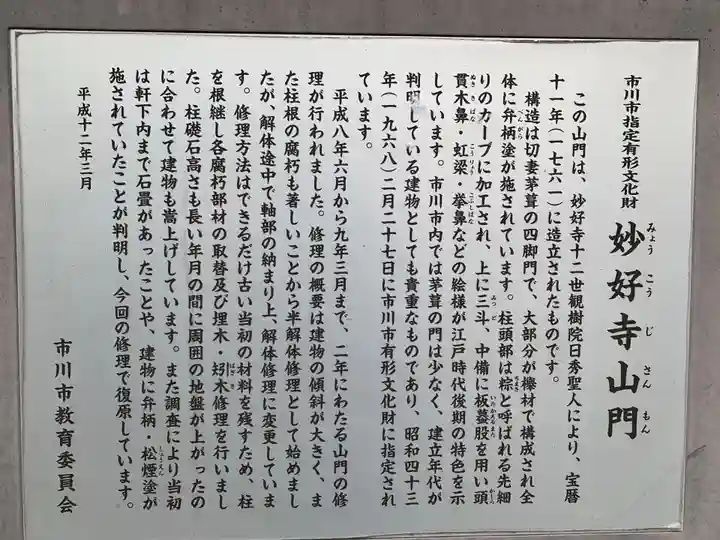 市川市指定有形文化財
妙好寺山門
みょうこうじさんもん
この山門は、妙好寺十二世観樹院日秀聖人により、宝暦
十一年(一七六一)に造立されたものです。
構造は切妻茅葺の四脚門で、大部分が欅材で構成され全
体に弁柄塗が施されています。柱頭部は粽と呼ばれる先細
りのカーブに加工され、上に三斗、中備に板蟇股を用い頭
貫木鼻・虹梁・拳鼻などの絵様が江戸時代後期の特色を示
しています。市川市内では茅葺の門は少なく、建立年代が
判明している建物としても貴重なものであり、昭和四十三
年(一九六八)二月二十七日に市川市有形文化財に指定され
ています。
平成八年六月から九年三月まで、二年にわたる山門の修
理が行われました。修理の概要は建物の傾斜が大きく、ま
た柱根の腐朽も著しいことから半解体修理として始めまし
たが、解体途中で軸部の納まり上、解体修理に変更していま
す。修理方法はできるだけ古い当初の材料を残すため、柱
を根継し各腐朽部材の取替及び埋木・矧木修理を行いまし
た。柱礎石高さも長い年月の間に周囲の地盤が上がったの
に合わせて建物も嵩上げしています。また調査により当初
は軒下内まで石畳があったことや、建物に弁柄・松煙塗が
施されていたことが判明し、今回の修理で復原しています。
平成十二年三月
市川市教育委員会